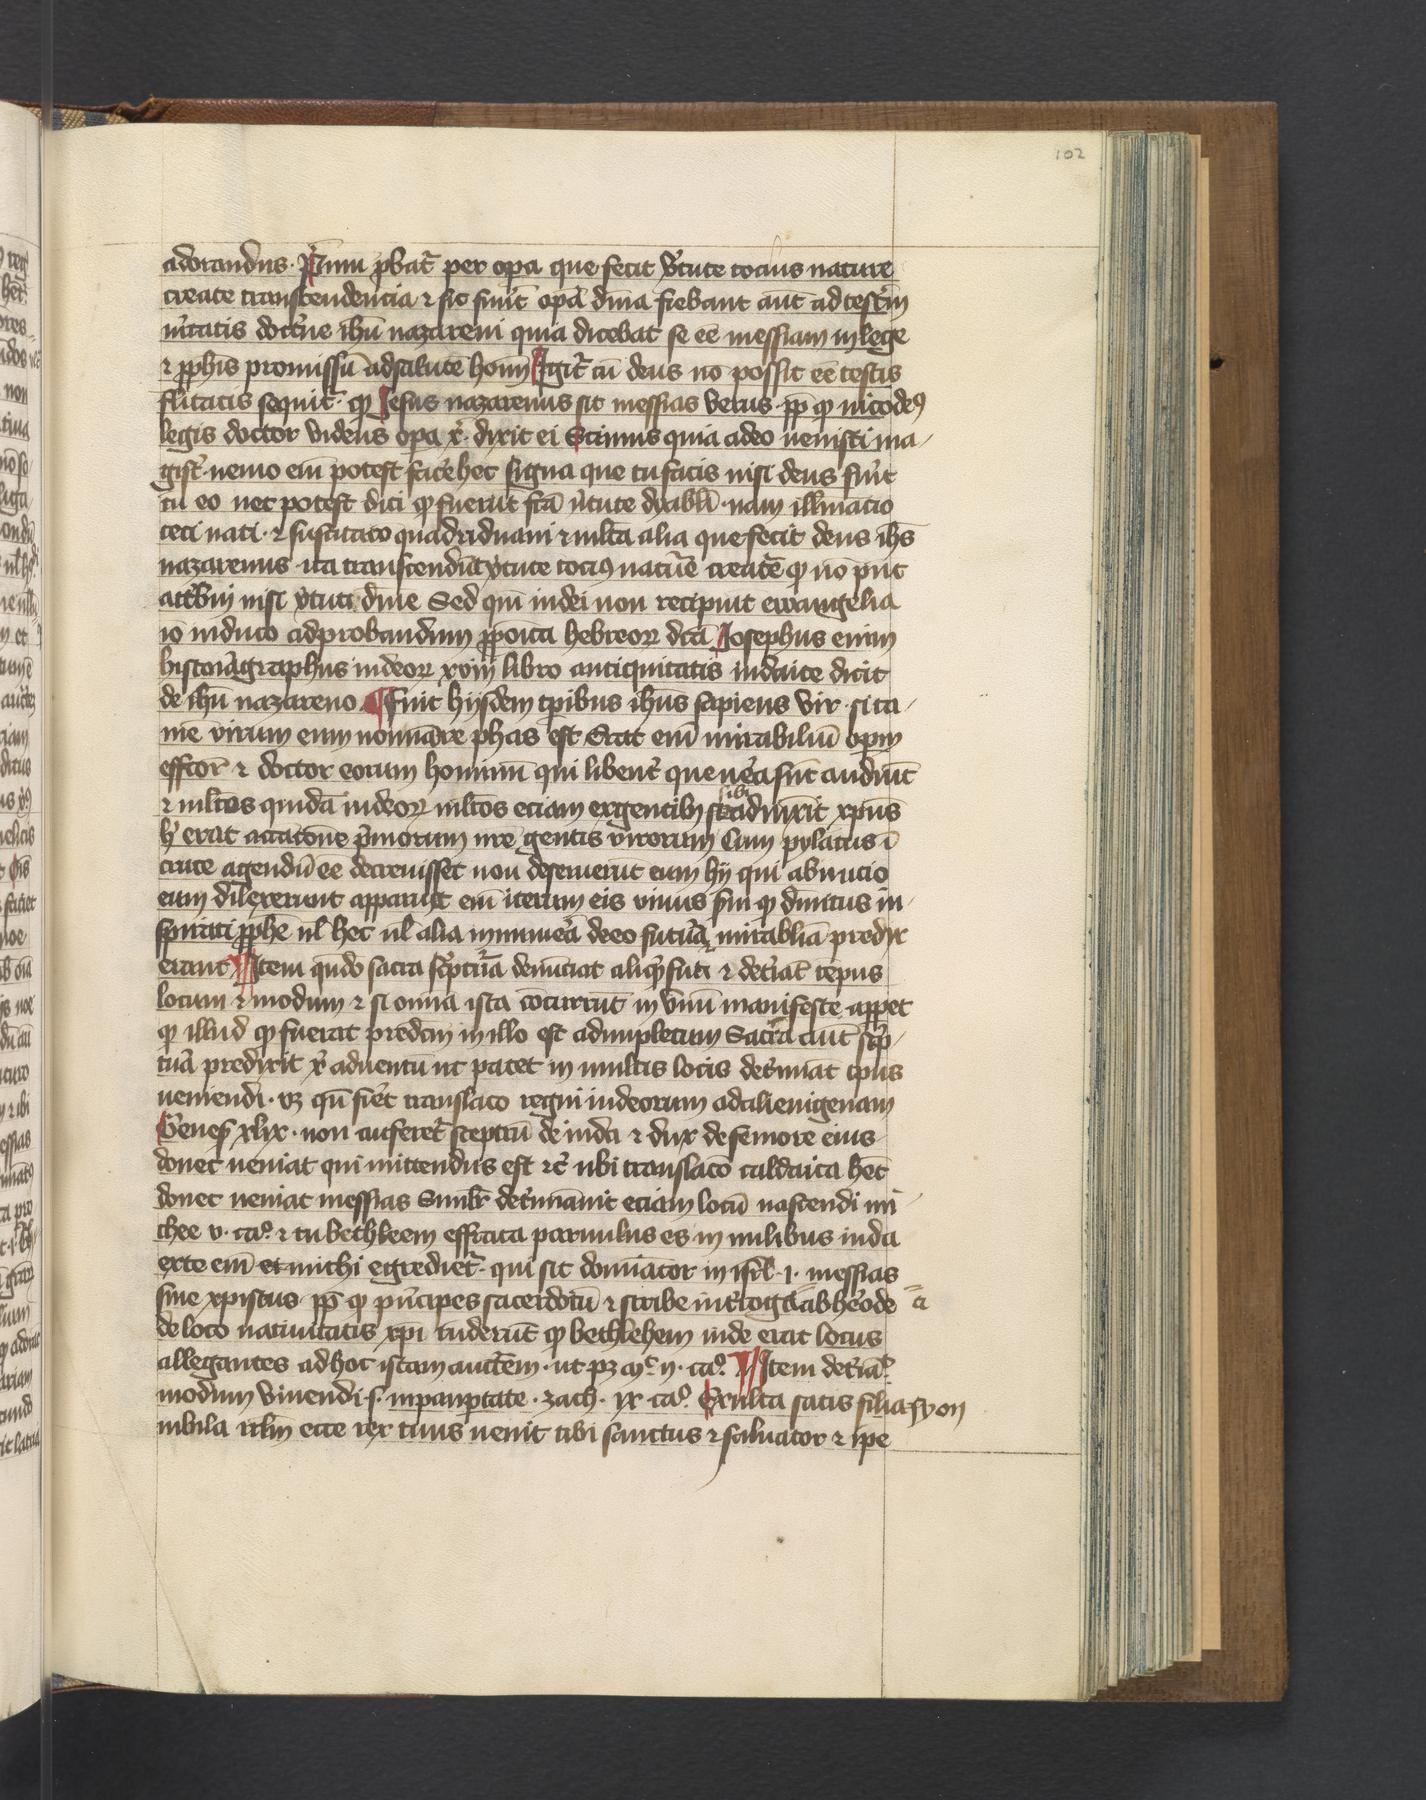 102
adorandus. Pͥmum ꝓbat᷑ per oꝑa que fecit v̾tute tocius nature
create transcendencia ⁊ sic fuiͤt oꝑa diͥna fiebant aut̄ ad test̾m
v̾itatis doct̾ne ihū nazareni quia dicebat se ēe messiam in lege
⁊ ꝓphis promissū ad salutē hom̄ Igit᷑ cū deus nō possit ēe testis
fl̾itatis sequit᷑ ꝙ Jesus nazarenus sit messias verus. ꝓpt̾ ꝙ nicodeꝰ
legis doctor videns oꝑa xͥ. dixit ei Scimus quia a deo uenisti ma-
gist᷑ nemo em̄ potest fac̾e hec signa que tu facis nisi deus fu̾it
cū eo nec potest dici ꝙ fuerūt fc̄a v̾tute dyabli nam illūinatio
ceci nati. ⁊ suscitatō quadriduani ⁊ mlt̄a alia que fecit deus ihs̄
nazarenus ita transcendūt v̾tute tociꝰ nature create ꝙ nō pn̄t
att̾bui nisi v̾tuti diͥne Sed qm̄ iudei non recipiūt ewangelia
iō induco ad probandum ꝓpoita hebreoꝝ dc̄a Josephus enim
historiagraphus iudeoꝝ xviij libro antiquitatis iudaice dicit
de ihū nazareno ¶ Fuit hijsdem tꝑibus ihūs sapiens vir. si ta-
mē virum eum noīnare phas est Erat em̄ mirabiliū oꝑm
effctor̄ ⁊ doctor eorum hominū qui libent̾ que uͤa sūt audiūt
⁊ mltōs quidā iudeoꝝ mltōs eciam ex gentibꝫ sibi adiunxit xpūs
hͥ erat accusatōne pͥmorum nr̄e gentis virorum Cum pylatus ī
cruce agendū ēe decreuisset non deseruerūt eum hij qui ab inicio
eum dilexerunt apparuit em̄ iterum eis viuus scd̄m ꝙ diͥnitus in-
spirati ꝓphe ul̄ hec ul̄ alia innumͤa de eo futura mirabilia predix
erant ¶ Item qn̄do sacra sc̾ptura denūciat aliqͥd futi ⁊ det̾iat tēpus
locum ⁊ modum ⁊ si omnia ista concurrūt in vnū manifeste apꝑet
ꝙ illud ꝙ fuerat predcm̄ in illo est adimpletum Sacra aut̄ sc̾p-
tura predixit xͥ aduentū ut patet in multis locis det̾minat tp̄us
ueniendi. vꝫ qn̄ fiet translacō regni iudeorum ad alienigenam
Genes̄ xlix. non auferet᷑ sceptrū de iuda ⁊ dux de femore eius
donec ueniat qui mittendus est ⁊c̄ ubi translacō caldaica hēt
donec ueniat messias Simil̾r det̾minauit eciam locū nascendi mi
chee v. caº. ⁊ tu bethleem effrata paruulus es in milibus iuda
exte em̄ et michi egrediet᷑. qui sit domiātor in isrl̄ .i. messias
siue xpistus. ꝓpt̾ ꝙ pͥncipes sacerdotū ⁊ scribe int̾rogati ab herode
de loco natiuitatis xpi tuderūt ꝙ bethlehem iude erat locus
allegantes ad hoc istam auctem. ut pꝫ mͭ. ij. caº. ¶ Item det̾iat
modum viuendi .s. in pauꝑtate. zach. ix caº. Exulta satis filia syon
iubila irlm̄ ecce rex tuus uenit tibi sanctus ⁊ saluator ⁊ ipe